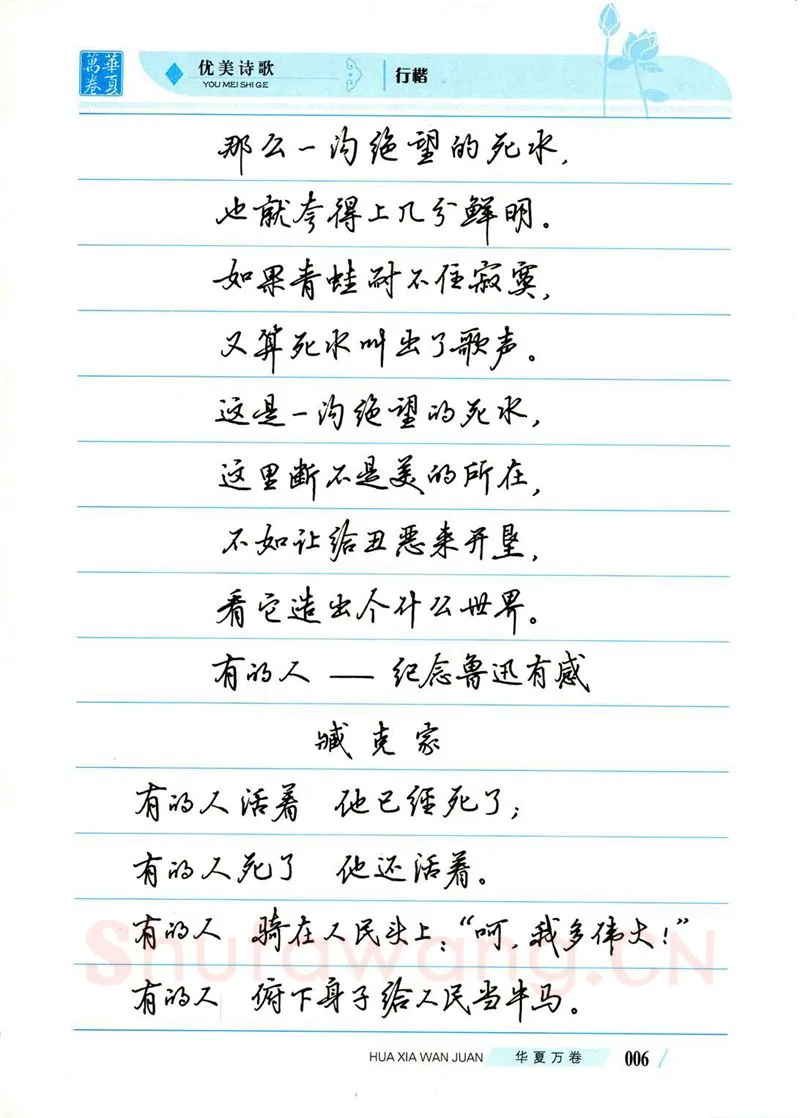 華夏
萬卷
优美诗歌
YOU MEI SHI GE
行楷
那么一沟绝望的死水,
也就夸得上几分鲜明。
如果青蛙耐不住寂寞,
又算死水叫出了歌声。
这是一沟绝望的死水,
这里断不是美的所在,
不如让给丑恶来开垦,
看它造出个什么世界。
有的人 —— 纪念鲁迅有感
臧克家
有的人活着 他已经死了;
有的人死了 他还活着。
有的人 骑在人民头上:“呵,我多伟大!”
有的人 俯下身子给人民当牛马。
Shufawang.CN
HUA XIA WAN JUAN 华夏万卷 006